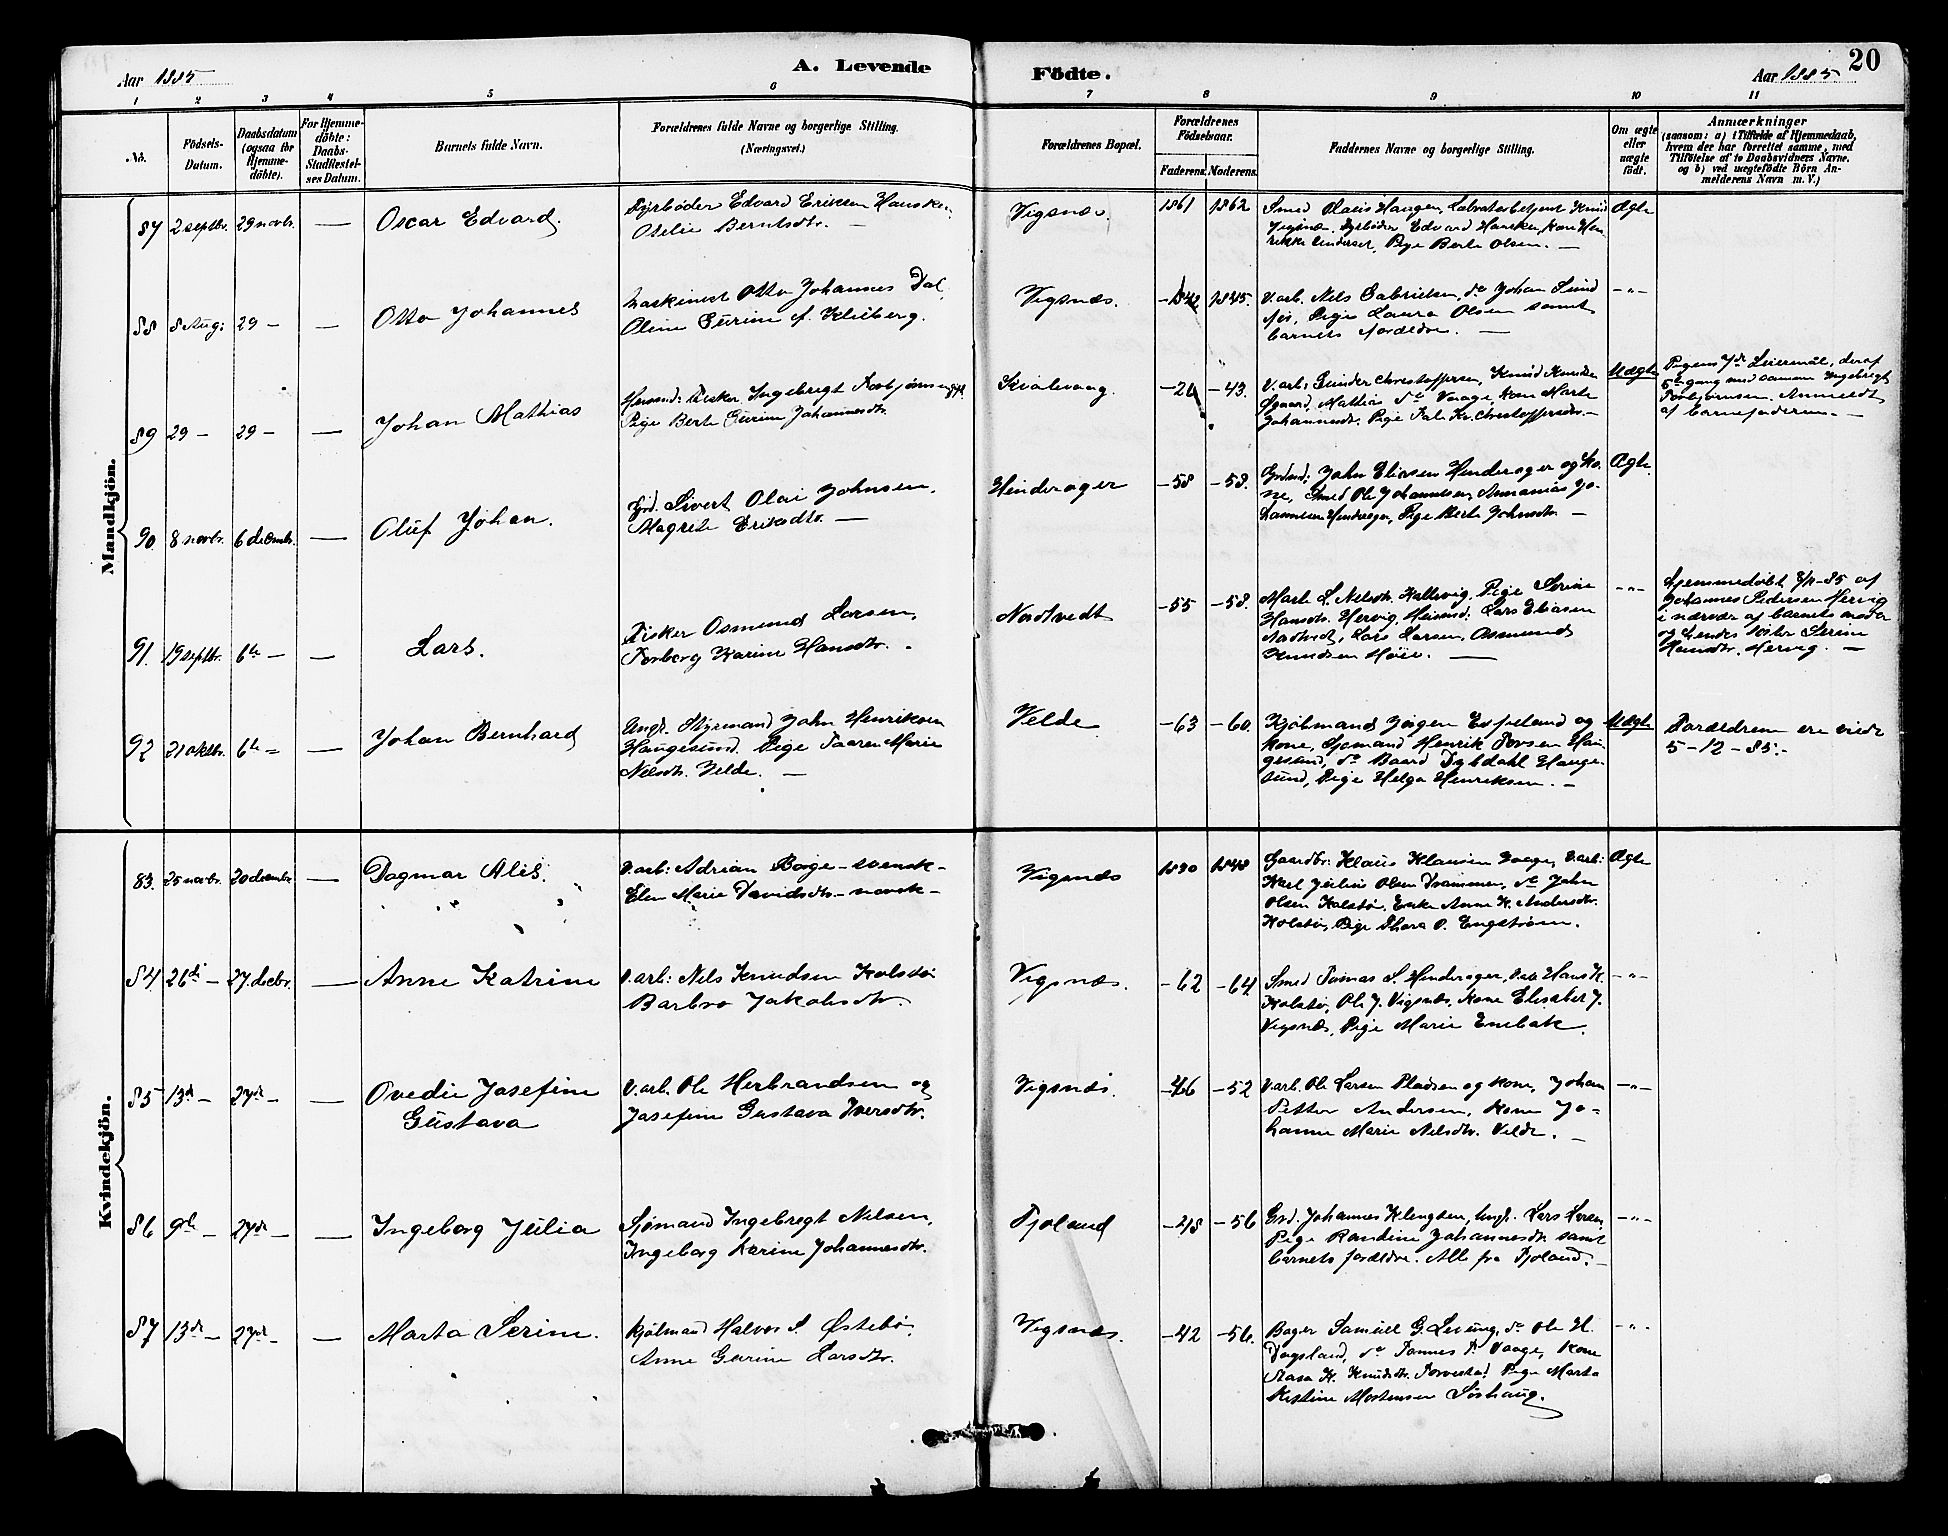 Aar 1885
A. Levende
Födte.
Aar 1885
20
1 2 3 4 5 6 7 8 9 10 11
No.
Födsels-Datum.
Daabsdatum (ogsaa for Hjemme-döbte).
For Hjemme-döbte: Daabs-Stadfæstelses Datum.
Barnets fulde Navn.
Forældrenes fulde Navne og borgerlige Stilling.
(Næringsvei.)
Forældrenes Bopæl.
Forældrenes Födselsaar.
Faderens. Moderens.
Faddernes Navne og borgerlige Stilling.
Om ægte eller uægte födt.
Anmærkninger
(saasom: a) i Tilfælde af Hjemmedaab,
hvem der har forrettet samme, med
Tilföielse af to Daabsvidners Navne.
og b) ved uægtefödte Börn An-
melderens Navn m. V.)
Mandkjön.
87 2 septbr. 29 novbr. — Oscar Edvard.
Fyrböder Edvard Eriksen
Otelie Berntsdtr. —
Vigsnæs. 1861 1862
Smed Olaus Haugen, Knud
Vigsnæs, Fyrböder Edvard kone Hen-
rikke Pige Berte Olsen. —
Ægte
88 8 Aug: 29 — — Otto Johannes
Maskinist Otto Johannes Dal,
Oline Surine f. Kleiberg.
Vigsnæs. —1842 1845.
V. arb. Nels Gabrielsen, do Johan Lund
Pige Laura Olsen samt
barnets forældre. —
—"—
89 29 — 29 — — Johan Mathias
Fisker Ingebregt Torbjörnsen
Pige Berte Surine Johannesdtr.
—43.
V. arb: Gunder Christoffersen, Knud Knudsen
Mathias do Vaage, kone Marte
Johannesdtr. Pige Kr. Christoffersdtr. —
Uægte
Pigens 7de Leiermål, deraf
5te gang med samme Ingebregt
Torbjörnsen. Anmeldt
af barnefaderen. —
90. 8 novbr. 6 decmbr. — Oluf Johan.
Grd. Sivert Olai Johnsen,
Magrete Eriksdtr. —
Hinderager —58 —58.
Grdmd: John Eliasen Hinderager og ko-
ne, Smed Ole Johannesen, Annanias Jo-
hannesen Hinderager, Pige Berte Johnsdtr. —
Ægte.
91. 19 septbr. 6te — — Lars.
Fisker Osmund Larsen,
Torborg Karine Hansdtr.
Nordtvedt —55 —58.
Marte L. Nelsdtr. Kallevig, Pige Serine
Hansdtr. Hervig, Lars Eliasen
Nordtvedt, Lars Larsen, Osmund
Knudsen Höie. —
—"—
Hjemmedöbt af
Johannes Pedersen Hervig
i nærvær af barnets moder
og hendes söster Serine
Hansdtr. Hervig. —
92 21 oktbr. 6te — — Johan Bernhard
Ungk. Styrmand John Henriksen
Haugesund. Pige Taaren Marie
Nelsdtr. Velde. —
Velde —63 —60.
Kjölmand Jörgen Espeland og
kone, Sjömand Henrik Torsen Hau-
gesund, do Baard Dybdahl Hauge-
sund, Pige Helga Henriksen. —
Uægte
Forældrene ere viede
5-12-85. —
Kvindekjön.
83. 25 novbr. 20 decmbr — Dagmar Alis.
V. arb: Adrian Borge — svensk —
Elen Marie Davidsdtr. — norsk —
Vigsnæs 1830 1848
Gaardbr. Klaus Klausen Vaage, V. arb:
Karl Julius Olsen Drammen, do John
Olsen Kolstö, Enke Anne K. Andersdtr.
Kolstö, Pige Thora O. Engström.
Ægte
84. 26de — 27 decbr. — Anne Katrine
V. arb: Nels Knudsen Kolstö
Barbro Jakobsdtr.
Vigsnæs. —62 —64
Smed Tomas S. Hinderager, Hans K.
Kolstö, Ole J. Vigsnæs, Kone Elisabet J.
Vigsnæs, Pige Marie Enebak.
—"—
85 13de — 27de — — Ovedie Josefine
Gustava
V. arb. Ole Herbrandsen og
Josefine Gustava Iversdtr.
Vigsnæs. —46 —52
V. arb. Ole Larsen Pladsen og kone, Johan
Petter Andersen, kone Jo-
hanne Marie Nelsdtr. Velde. —
—"—
86 9de — 27de — — Ingeborg Julia
Sjömand Ingebregt Nelsen,
Ingeborg Karine Johannesdtr.
Fjoland —56
Grd. Johannes Klengsen, Ungk. Lars Larsen,
Pige Randine Johannesdtr. samt
barnets forældre. Alle fra Fjoland. —
—"—
87 13de — 27de — — Marta Serine.
Kjölmand Halvor S. Østebö,
Anne Gurine Larsdtr.
Vigsnæs. —42 —56.
Bager Samuel G. do Ole H.
Dagsland, do Tonnes T. Vaage, Kone
Aasa K. Knudsdtr. Torvestad, Pige Marta
Kistine Mortensen Sörhaug.
—"—